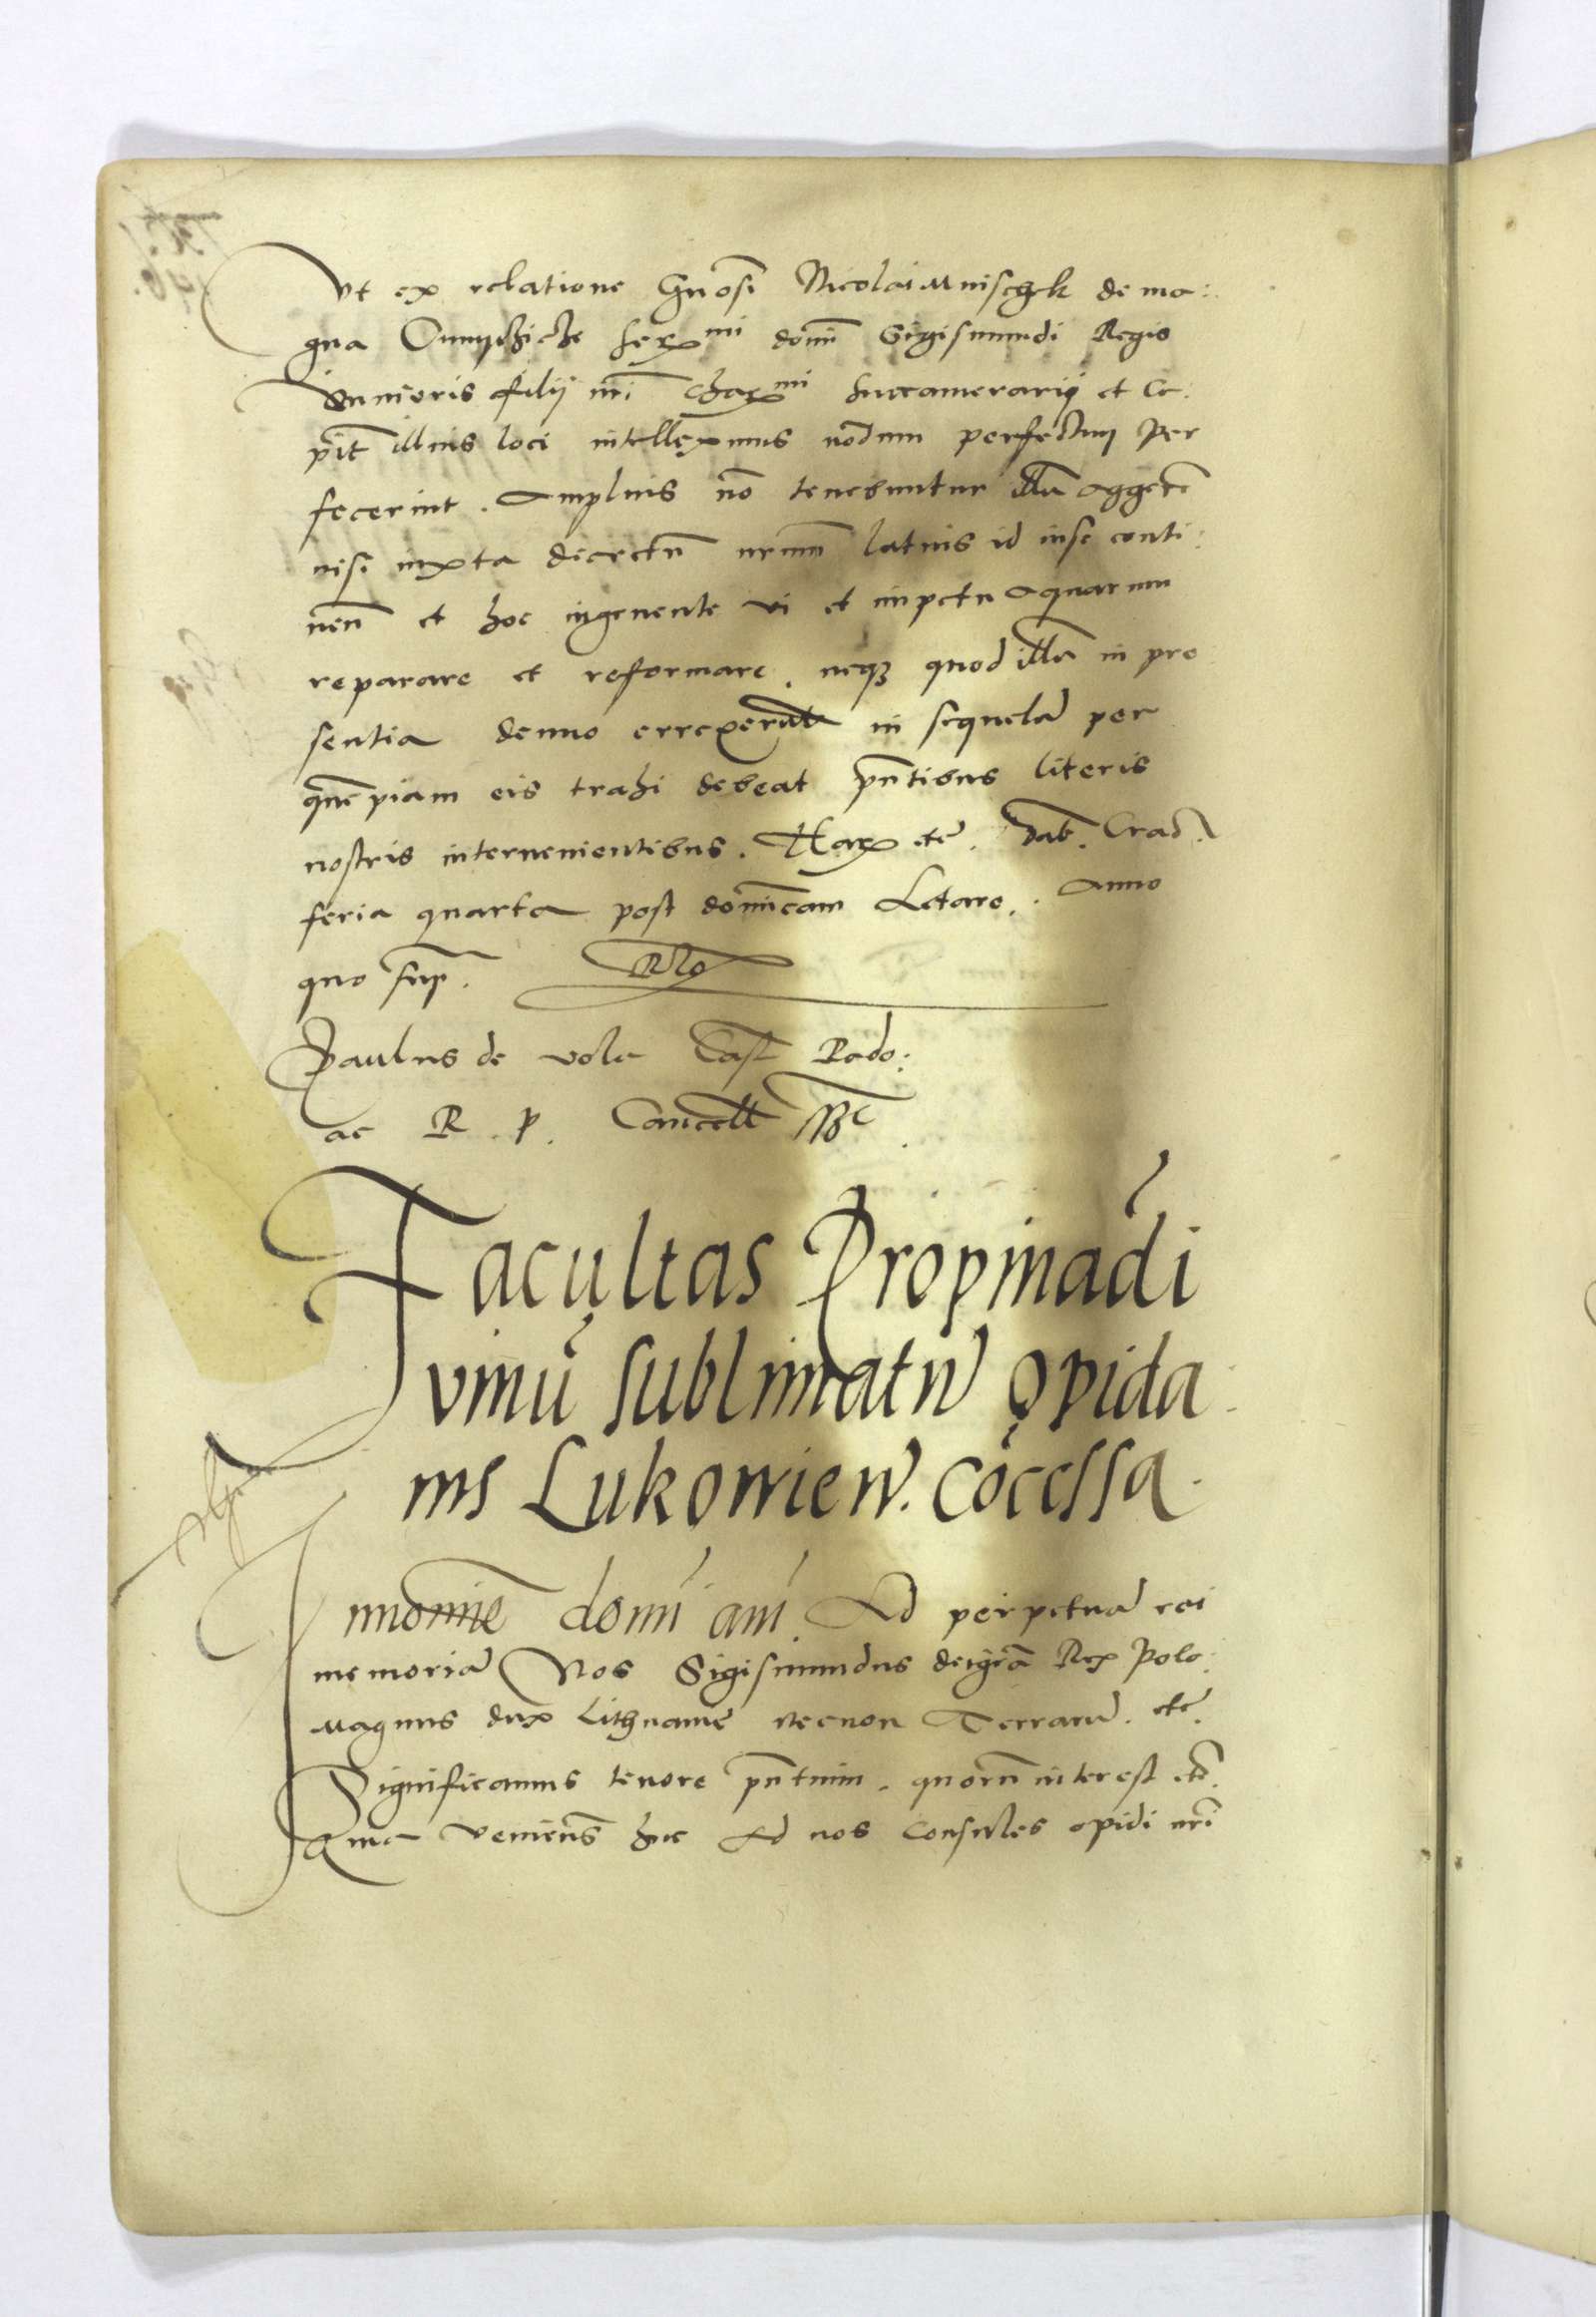 Vt ex relatione Gnosi Nicolai Mnischek de ma:
gna Ser mi domi Sigismundi Regis
Iunioris filij nri Char mi succamerarij et Ce:
pit illius loci intelleximus nodum perfectum per
fecerint. Amplius no tenebuntur illu aggere
nisi iuxta decretu nrum latius id inse conti:
nen et hoc ingruente vi et impetu aquarum
reparare et reformare. neq quod illa in pre
sentia denuo errexerut in sequela per
quempiam eis trahi debeat pntibus literis
nostris interuenientibus. Har etc. Dat. Crac.
feria quarta post dominicam Letare. Anno
quo sup. Rlo
Paulus de vola Cast Rado:
ac R. P. Cancell sst
Facultas Propinadi
vinu sublimatu opida
nis Lukowien. cocessa.
Innomie domi ani Ad perpetua rei
memoria Nos Sigismundus deigra Rex Polo:
Magnus dux Lithuanie Necnon Terraru. etc.
Significamus tenore pntium. quoru interest etc.
Quia veniens huc Ad nos Consules opidi nri